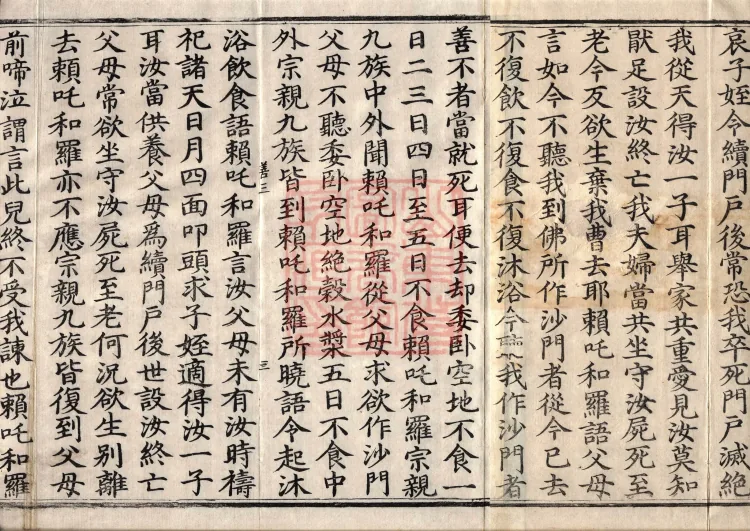 哀子姪令續門戶後常恐我卒死門戶滅絶
我從天得汝一子耳舉家共重愛見汝莫知
猒足設汝終亡我夫婦當共坐守汝屍死至
老今反欲生棄我曹去耶賴吒和羅語父母
言如今不聽我到佛所作沙門者從今已去
不復飲不復食不復沐浴令我作沙門者
善不者當就死耳便去却委卧空地不食一
日二三日四日至五日不食賴吒和羅宗親
九族中外聞賴吒和羅從父母求欲作沙門
父母不聽委卧空地絶穀水漿五日不食中
外宗親九族皆到賴吒和羅所曉語令起沐
善三 三
浴飲食語賴吒和羅言汝父母未有汝時禱
祀諸天日月四面叩頭求子姪適得汝一子
耳汝當供養父母爲續門戶後世設汝終亡
父母常欲坐守汝屍死至老何況欲生別離
去賴吒和羅亦不應宗親九族皆復到父母
前啼泣謂言此兒終不受我諫也賴吒和羅